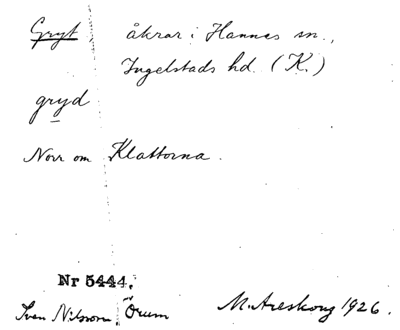 Gryt, åkrar i Hannas sn.,
Ingelstads hd. (K.)
gryd
Norr om Klattorna.
Nr 5444.
Sven Nilsson, Örum M. Areskoug 1926.